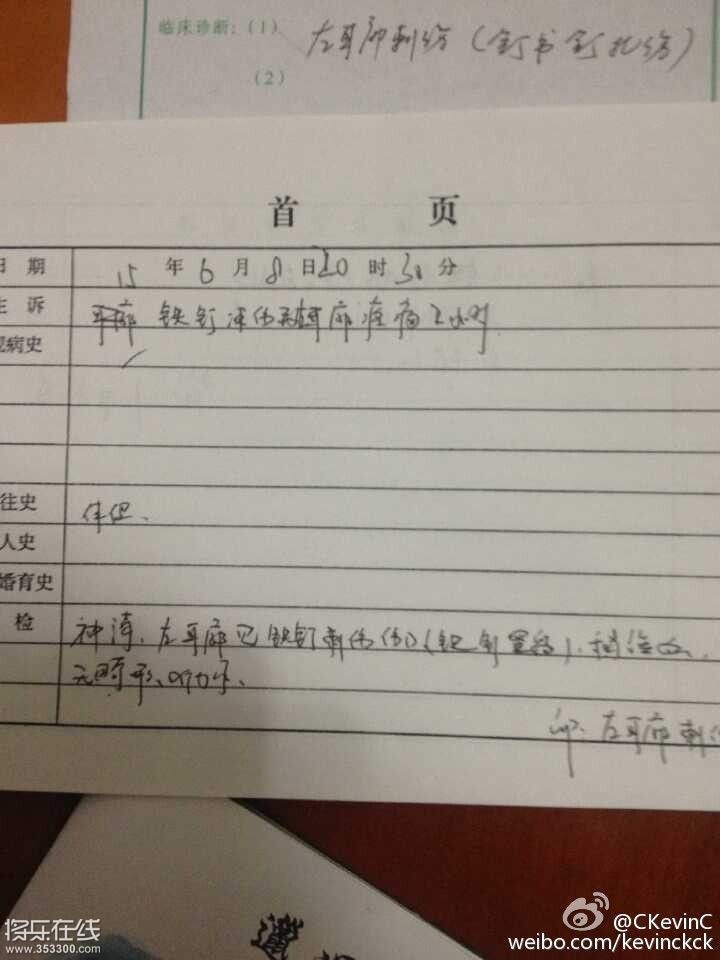 临床诊断:(1) 左耳廓刺伤(钉书钉扎伤)
(2)
首 页
日 期 15 年 6 月 8 日 20 时 30 分
主 诉 铁钉 耳廓疼痛2小时
现病史
往史 体健、
人史
婚育史
检 神清、左耳廓见铁钉刺伤伤口(
无畸形、听力可、
印:左耳廓刺伤
将乐在线
www.353300.com
@CKevinC
weibo.com/kevinckck